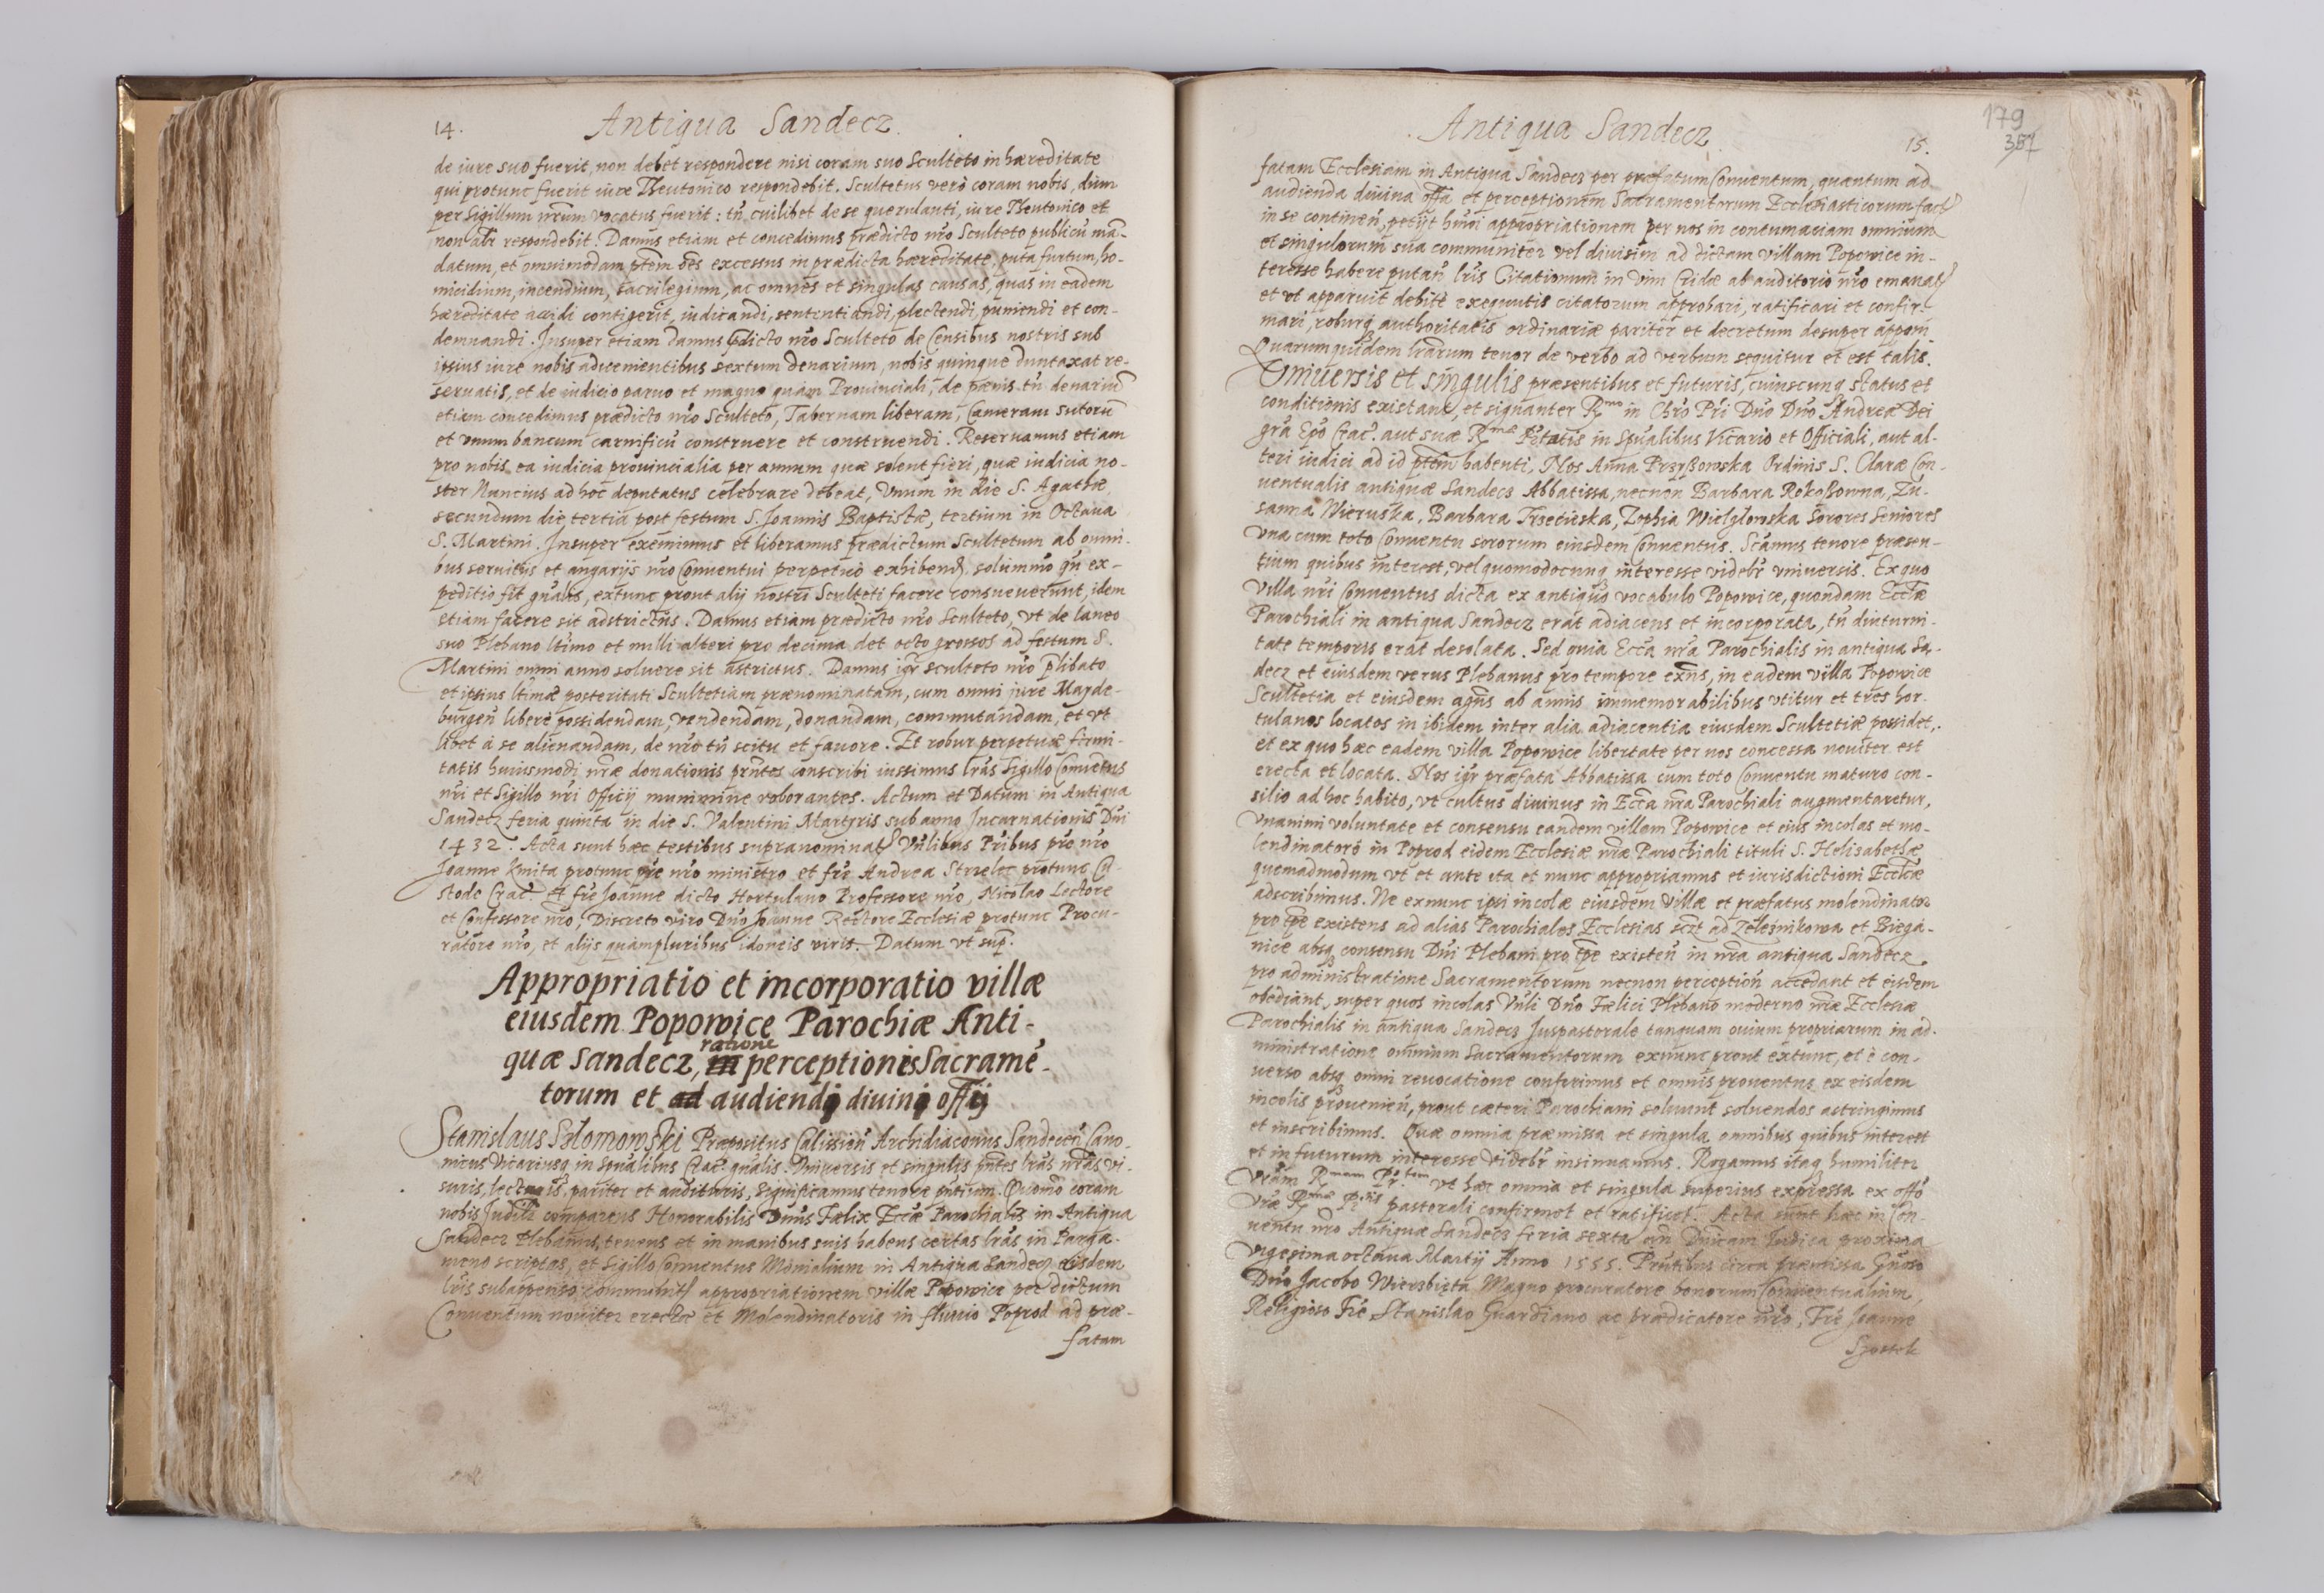 14. Antiqua Sandecz.
de iure suo fuerit, non debet respondere nisi coram suo Sculteto in hæreditate
qui protunc fuerit iure Theutonico respondebit. Scultetus verò coram nobis, dum
per Sigillum nr̃um vocatus fuerit: tñ cuilibet de se querulanti, iure Theutonico et
non alr̃ respondebit. Damus etiam et concedimus prædicto nr̃o Sculteto publicũ man-
datum, et omnimodam ptẽm oẽs excessus in prædicta hæreditate, puta furtum, ho-
micidium, incendium, sacrilegium, ac omnes et singulas causas, quas in eadem
hæreditate accidi contigerit, iudicandi, sententiandi, plectendi, puniendi et con-
demnandi. Insuper etiam damus p̃dicto nr̃o Sculteto de Censibus nostris sub
ipsius iure nobis advenientibus sextum denarium, nobis quinque duntaxat re-
servatis, et de iudicio parvo et magno quàm Provinciali, de pænis tñ denariũ
etiam concedimus prædicto nr̃o Sculteto, Tabernam liberam, Cameram sutorũ
et unum bancum carnificũ construere et construendi. Reservamus etiam
pro nobis ea iudicia provincialia per annum quæ solent fieri, quæ iudicia no-
ster Nuncius ad hoc deputatus celebrare debeat, Unum in die S. Agathæ,
secundum die tertia post festum S. Joannis Baptistæ, tertium in Octava
S. Martini. Insuper eximimus et liberamus prædictum Scultetum ab omni-
bus servitijs et angarijs nr̃o Conventui perpetuò exhibend. solummõ qñ ex-
peditio fit gñalis, extunc prout alij nostri Sculteti facere consueverunt, idem
etiam facere sit adstrictus. Damus etiam prædicto nr̃o Sculteto, ut de laneo
suo Plebano ltimo et nulli alteri pro decima det octo grossos ad festum S.
Martini omni anno solvere sit astrictus. Damus igr̃ sculteto nr̃o p̃libato
et ipsius ltimæ posteritati Scultetiam prænominatam, cum omni jure Mayde-
burgeñ liberè possidendam, vendendam, donandam, commutandam, et ut
libet à se alienandam, de nr̃o tñ scitu et favore. Et robur perpetuæ firmi-
tatis huiusmodi nr̃æ donationis prñtes conscribi iussimus lr̃as Sigillo Conventus
nr̃i et Sigillo nr̃i Officij munimine roborantes. Actum et Datum in Antiqua
Sandecz feria quinta in die S. Valentini Martyris sub anno Incarnationis Dñi
1432. Acta sunt hæc testibus supranominatis Vñlibus Pr̃ibus pr̃e nr̃o
Joanne Kmita protunc pr̃e nr̃o ministro et fr̃e Andrea Strzelec protunc Cu-
stode Crac. et fr̃e Joanne dicto Hortulano Professore nr̃o, Nicolao Lectore
et Confessore nr̃o, Discreto viro Dño Joanne Rectore Ecclesiæ protunc Procu-
ratore nr̃o, et alijs quàmpluribus idoneis viris. Datum ut sup.
Appropriatio et incorporatio villæ
eiusdem Popowice Parochiæ Anti-
quæ Sandecz, ratione perceptionis Sacramẽ-
torum et audiendi divini offij
Stanislaus Szlomowski Præpositus Calissieñ Archidiaconus Sandeceñ Cano-
nicus Vicariusq in spualibus Crac. gñalis. Universis et singulis pñtes lr̃as nr̃as vi-
suris, lecturis, pariter et audituris, significamus tenore pñtium. Quomõ coram
nobis Judilr̃ comparens Honorabilis Dñus Fælix Eccæ Parochialis in Antiqua
Sandecz Plebanus, tenens et in manibus suis habens certas lr̃as in Parga-
meno scriptas, et Sigillo Conventus Monialium in Antiqua Sandecz eisdem
lr̃is subappenso communitas appropriationem villæ Popowice per dictum
Conventum noviter erectæ et Molendinatoris in fluvio Poprod ad præ-
fatam
Antiqua Sandecz. 15.
179
357
fatam Ecclesiam in Antiqua Sandecz per præfatum Conventum, quantum ad
audienda divina offa et perceptionem Sacramentorum Ecclesiasticorum fact
in se continen, petijt huiõi appropriationem per nos in contumaciam omnium
et singulorum sua communiter vel divisim ad dictam villam Popowice in-
teresse habere putañ lr̃is Citationum in vim Cridæ ab auditorio nr̃o emanat
et ut apparuit debitè exequutis citatorum approbari, ratificari et confir-
mari, roburq authoritatis ordinariæ pariter et decretum desuper apponi.
Quarumquidem lr̃arum tenor de verbo ad verbum sequitur et est talis.
Universis et singulis præsentibus et futuris, cuiuscunq status et
conditionis existant, et signanter Rmo in Chr̃o Pr̃i Dño Dño Andreæ Dei
gr̃a Epõ Crac. aut suæ Rmæ Ptatis in Spũalibus Vicario et Officiali, aut al-
teri iudici ad id ptẽm habenti, Nos Anna Przyßowska Ordinis S. Claræ Con-
ventualis antiquæ Sandecz Abbatissa, necnon Barbara Rokoßowna, Zu-
sanna Wieruska, Barbara Trzecieska, Zophia Wielglowska Sorores Seniores
una cum toto Conventu sororum eiusdem Conventus. Scimus tenore præsen-
tium quibus interest, vel quomodocunq interesse videbr̃ universis. Ex quo
Villa nr̃i Conventus dicta ex antiquo vocabulo Popowice, quondam Ecclæ
Parochiali in antiqua Sandecz erat adiacens et incorporata, tñ diuturni-
tate temporis erat desolata. Sed quia Ecca nr̃a Parochialis in antiqua San-
decz et eiusdem verus Plebanus pro tempore exñs, in eadem villa Popowice
Scultetia et eiusdem agris ab annis immemorabilibus utitur et tres hor-
tulanos locatos in ibidem inter alia adiacentia eiusdem Scultetiæ possidet,
et ex quo hæc eadem villa Popowice libertate per nos concessa noviter est
erecta et locata. Nos igr̃ præfata Abbatissa cum toto Conventu maturo con-
silio ad hoc habito, ut cultus divinus in Ecca nr̃a Parochiali augmentaretur,
unanimi voluntate et consensu eandem villam Popowice et eius incolas et mo-
lendinatorẽ in Poprod eidem Ecclesiæ nr̃æ Parochiali tituli S. Helisabethæ
quemadmodum ut et ante ita et nunc appropriamus et iurisdictioni Eccæ
adscribimus. Ne exnunc ipsi incolæ eiusdem Villæ et præfatus molendinator
pro tp̃e existens ad alias Parochiales Ecclesias sczt ad Zelesnikowa et Biega-
nice absq consensu Dñi Plebani pro tp̃e existeñ in nr̃a antiqua Sandecz
pro administratione Sacramentorum necnon perceptioñ accedant et eisdem
obediant, super quos incolas Vñli Dño Fælici Plebano moderno nr̃æ Ecclesiæ
Parochialis in antiqua Sandecz Juspastorale tanquam ovium propriarum in ad-
ministratione omnium Sacramentorum exnunc prout extunc, et è con-
verso absq omni revocatione conferimus et omnes proventus ex eisdem
incolis provenieñ, prout cæteri Parochiani solvunt solvendos astringimus
et inscribimus. Quæ omnia præmissa et singula omnibus quibus interest
et in futurum interesse videbr̃ insinuamus. Rogamus itaq humiliter
Vr̃am Rmam Ptem ut hæc omnia et singula superius expressa ex offõ
Vr̃æ Rmæ Ptis pastorali confirmet et ratificet. Acta sunt hæc in Con-
ventu nr̃o Antiquæ Sandecz feria sexta añ Dñicam Judica proxima
vigesima octava Martij Anno 1555. Prñtibus circa præmissa Gñoso
Dño Jacobo Wierzbięta Magno procuratore bonorum Conventualium,
Religioso Fr̃e Stanislao Guardiano ac prædicatore nr̃o, Fr̃e Joanne
Szostek